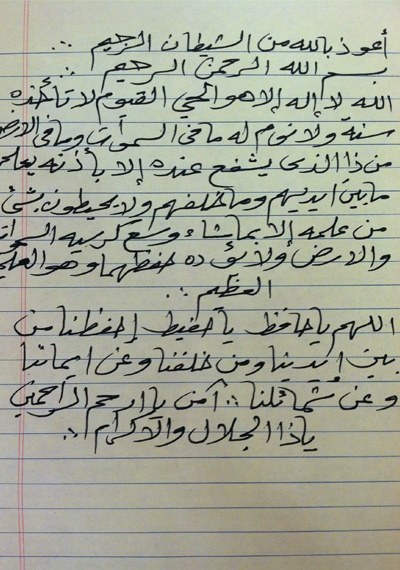 أعوذ بالله من الشيطان الرجيم ∴
بسم الله الرحمن الرحيم ∴
الله لا إله إلا هو الحي القيوم لا تأخذه
سنة ولا نوم له ما في السموات وما في الارض
من ذا الذي يشفع عنده إلا بأذنه يعلم
ما بين ايديهم وما خلفهم ولا يحيطون بشئ
من علمه إلا بما شاء وسع كرسيه السموات
والارض ولا يؤده حفظهما وهو العلي
العظيم ∴
اللهم يا حافظ يا حفيظ إحفظنا من
بين ايدينا ومن خلفنا وعن ايماننا
وعن شمائلنا ∴ آمن يا ارحم الراحمين
يا ذا الجلال والاكرام ∴